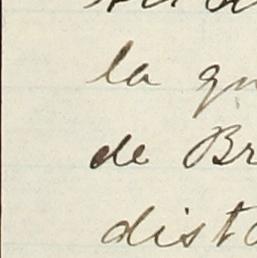 la qu
de Br
dista